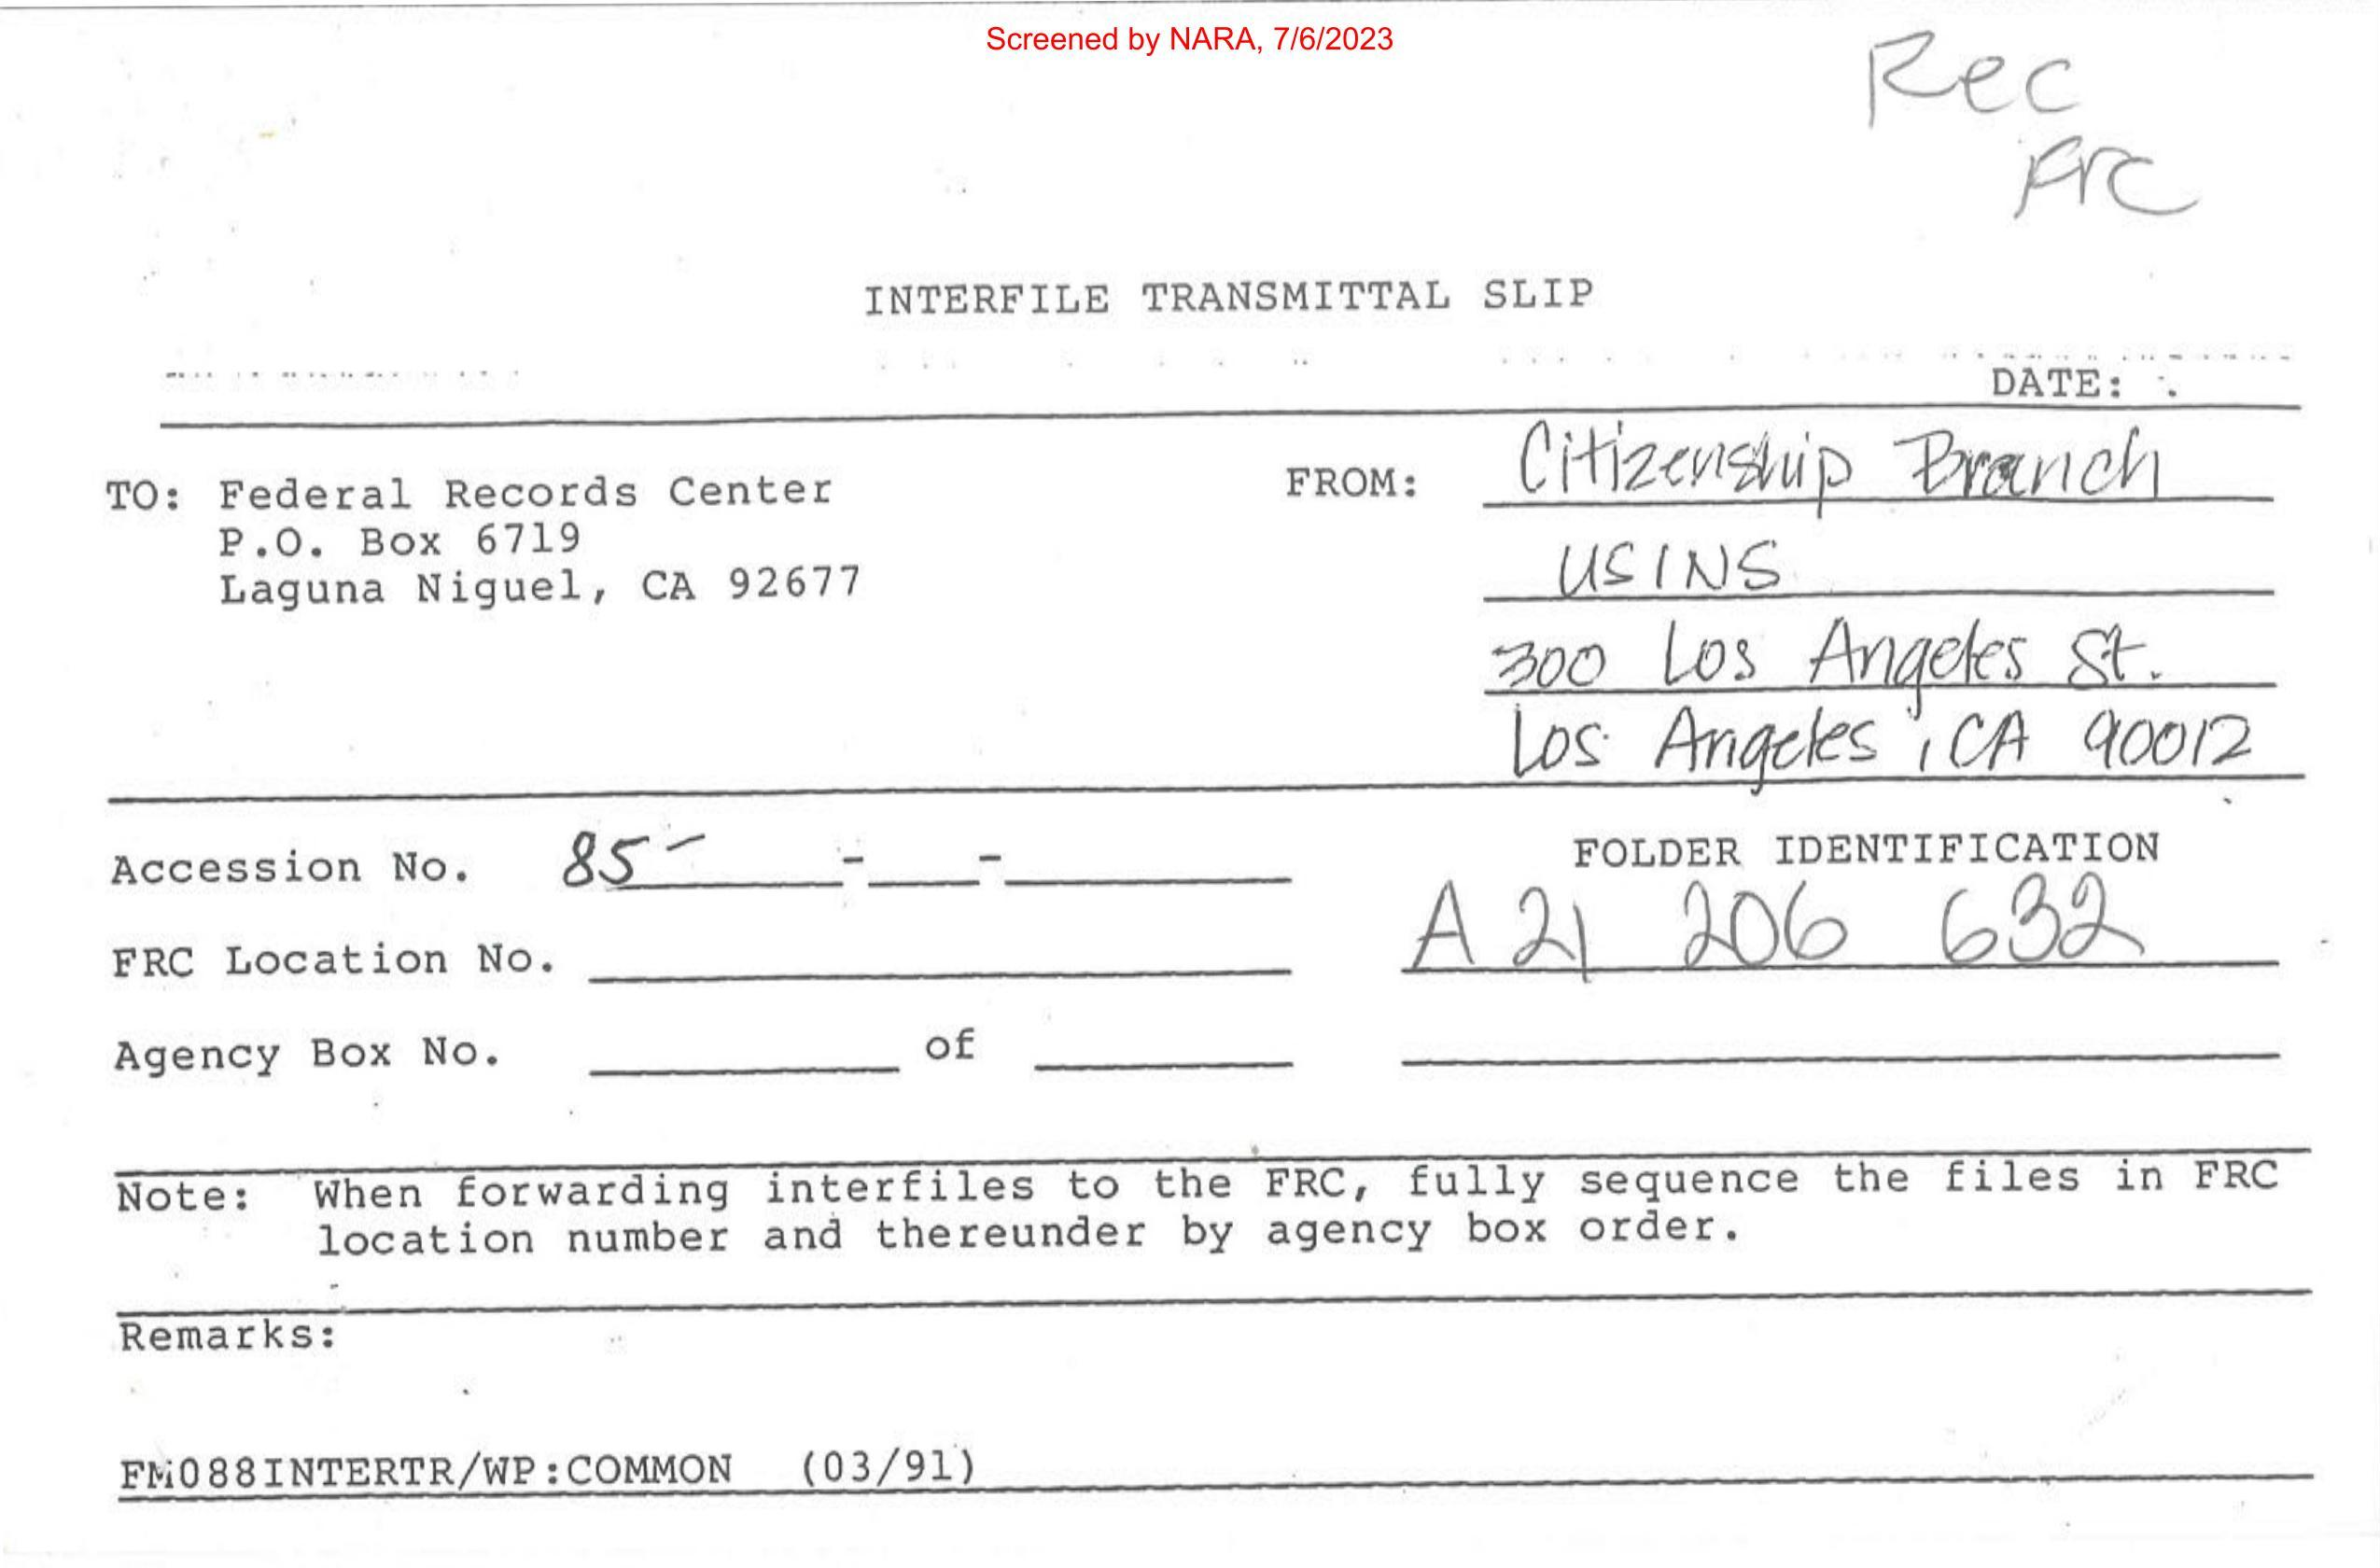 Screened by NARA, 7/6/2023
Rec
FRC
INTERFILE TRANSMITTAL SLIP
DATE:
TO: Federal Records Center
P.O. Box 6719
Laguna Niguel, CA 92677
FROM: Citizenship Branch
USINS
300 Los Angeles St.
Los Angeles, CA 90012
Accession No. 85-    -    -
FOLDER IDENTIFICATION
A 21 206 632
FRC Location No.
Agency Box No.     of
Note: When forwarding interfiles to the FRC, fully sequence the files in FRC
location number and thereunder by agency box order.
Remarks:
FM088INTERTR/WP:COMMON (03/91)